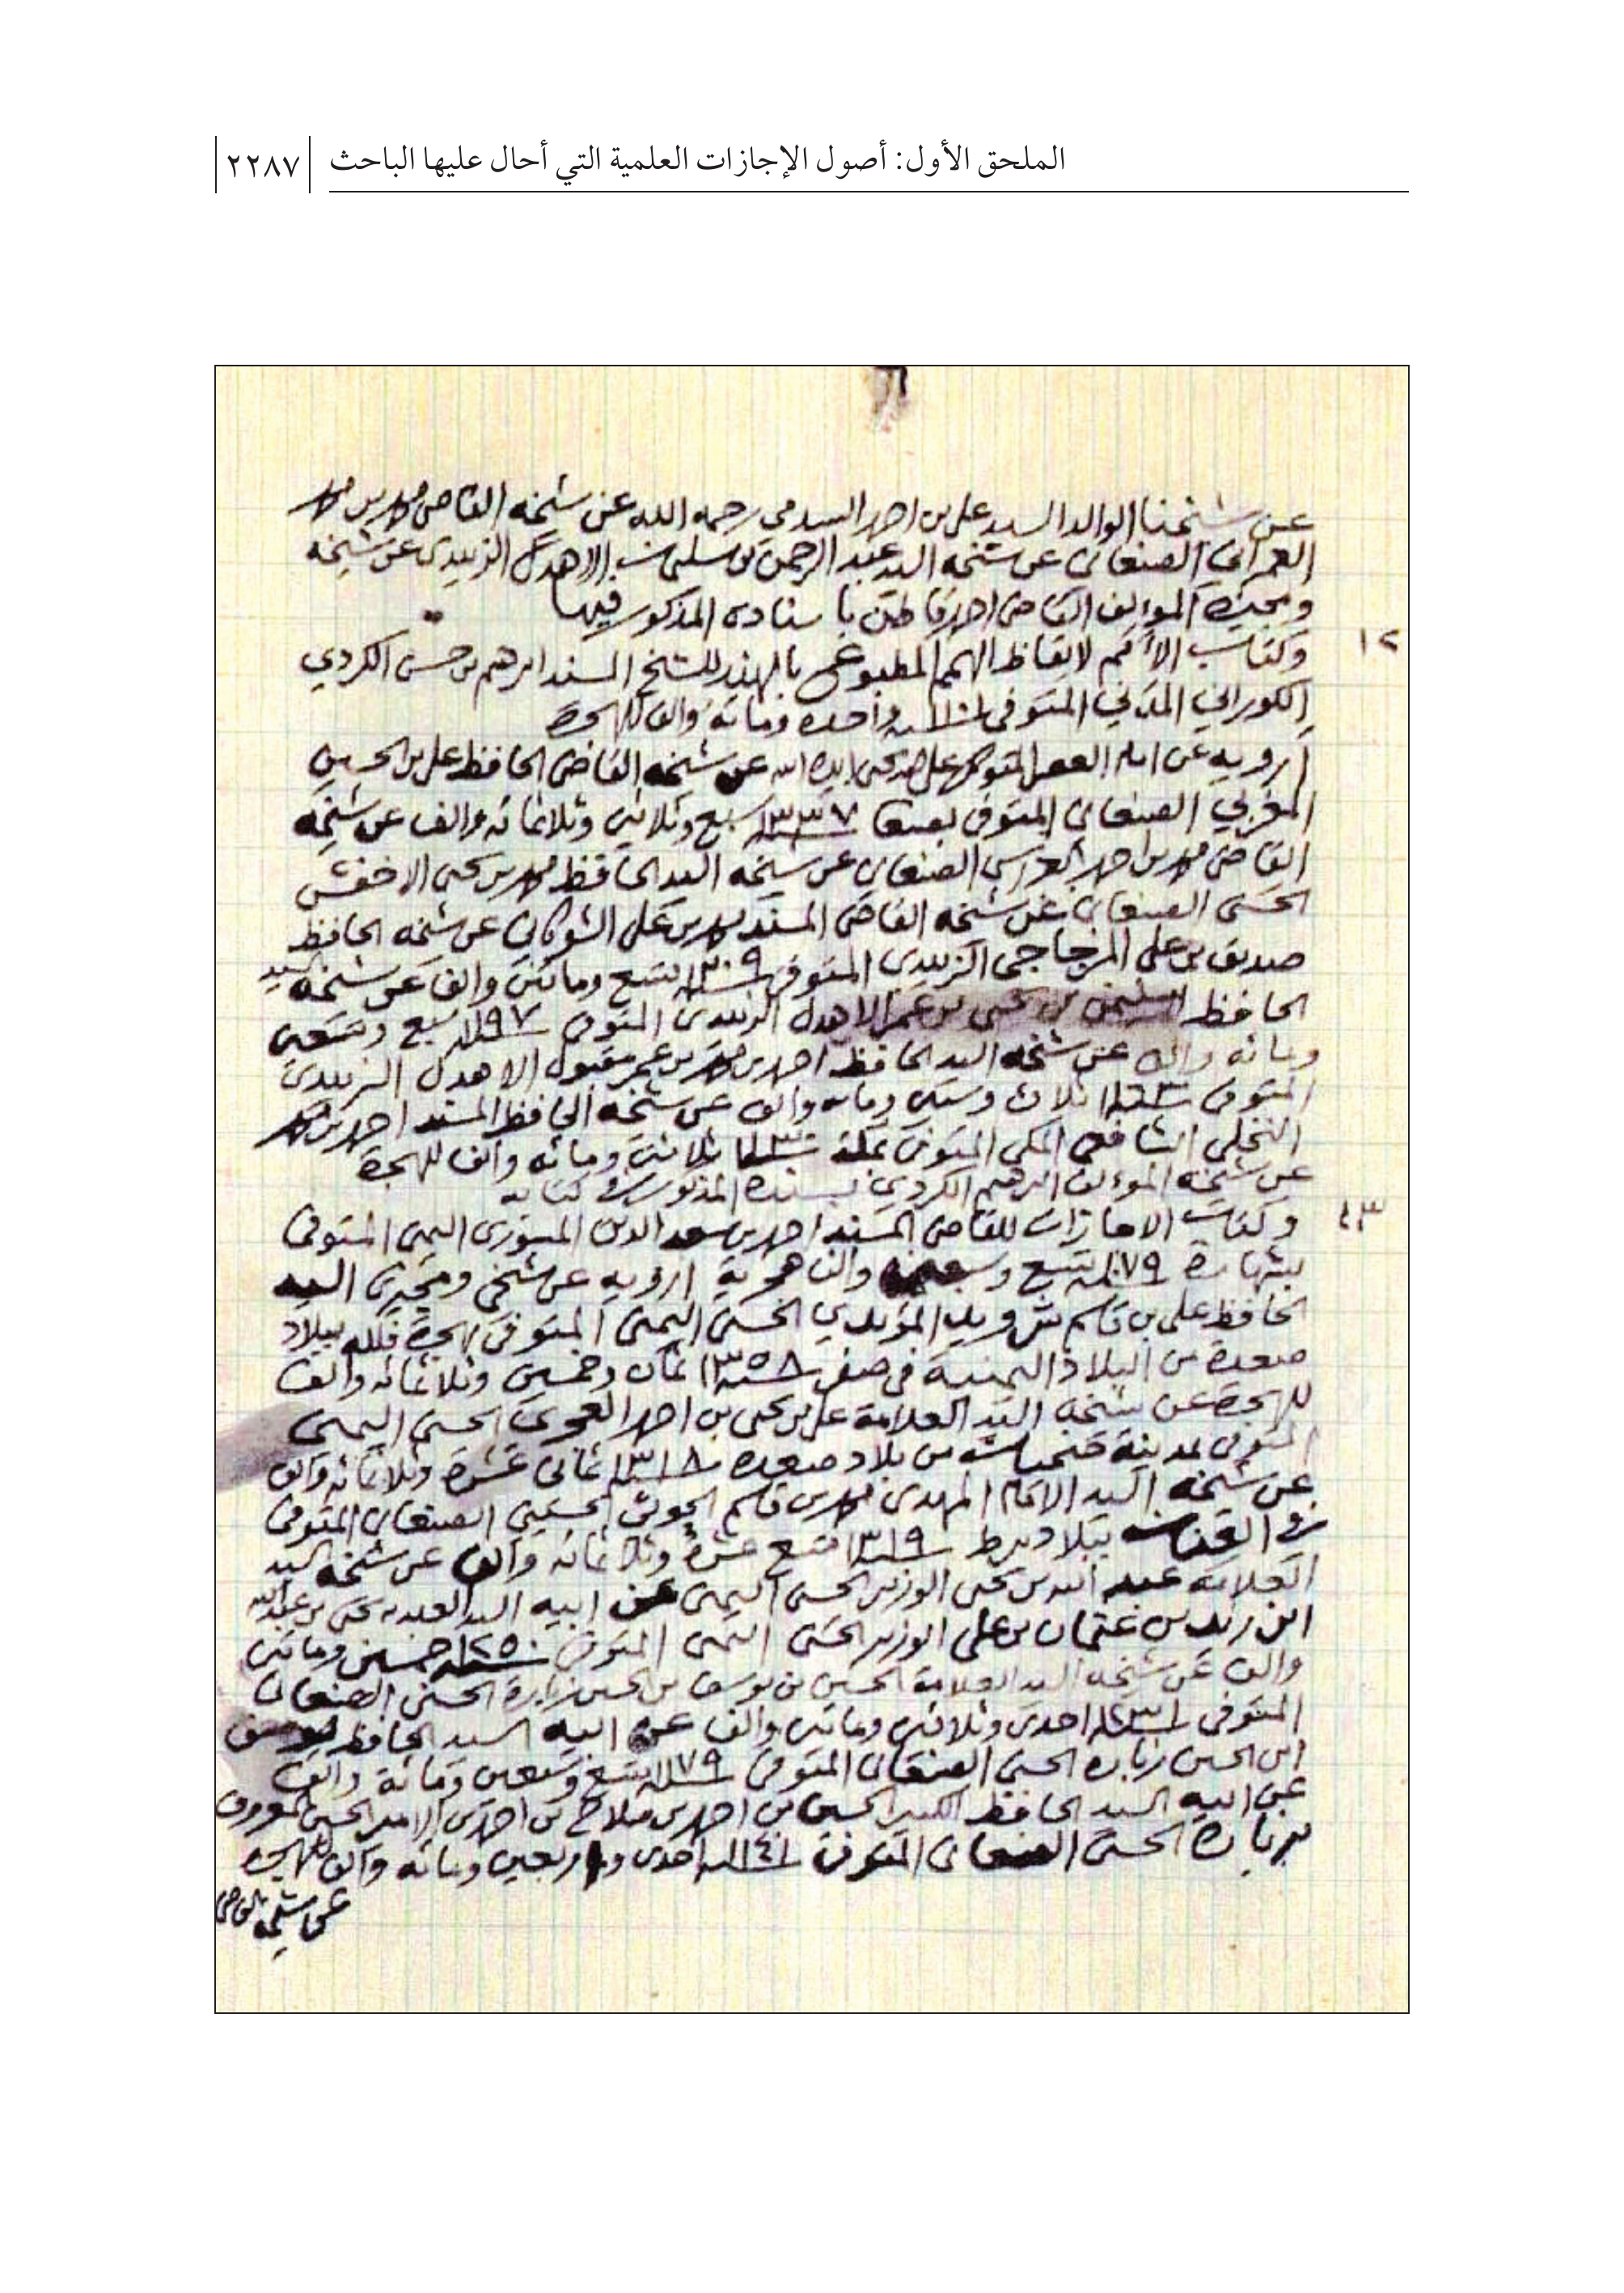 الملحق الأول: أصول الإجازات العلمية التي أحال عليها الباحث
٢٢٨٧
عن شيخنا الوالد السيد علي بن احمد السدمي رحمه الله عن شيخه القاضي محمد بن محمد
العمراني الصنعاني عن شيخه السيد عبد الرحمن بن سليمان الاهدل الزبيدي عن شيخه
ومجيزه المؤلف القاضي احمد قاطن باسناده المذكور فيها
١٢
وكتاب الأمم لايقاظ الهمم المطبوع بالهند للشيخ المسند ابرهيم بن حسن الكردي
الكوراني المدني المتوفى سنة ١١٠١ واحده ومائة والف للهجرة
ارويه عن امام العصر المتوكل على الله يحيى ايده الله عن شيخه القاضي الحافظ علي بن الحسين
المغربي الصنعاني المتوفى بصنعا سنة ١٣٣٧ سبع وثلاثين وثلاثمائه والف عن شيخه
القاضي محمد بن احمد العراسي الصنعاني عن شيخه السيد الحافظ محمد بن يحيى الاخفش
الحسني الصنعاني عن شيخه القاضي المسند محمد بن علي الشوكاني عن شيخه الحافظ
صديق بن علي المزجاجي الزبيدي المتوفى سنة ١٢٠٩ تسع ومائتين والف عن شيخه السيد
الحافظ سليمن بن يحيى بن عمر الاهدل الزبيدي المتوفى سنة ١١٩٧ سبع وتسعين
ومائه والف عن شيخه السيد الحافظ احمد بن محمد بن عمر مقبول الاهدل الزبيدي
المتوفى سنة ١١٦٣ ثلاث وستين ومائه والف عن شيخه الحافظ المسند احمد بن محمد
النخلي الشافعي المكي المتوفى بمكة سنة ١١٣٠ ثلاثين ومائه والف للهجرة
عن شيخه المؤلف ابرهيم الكردي بسنده المذكور في كتابه
١٣
وكتاب الاجازات للقاضي المسند احمد بن سعد الدين المسوري اليمني المتوفى
بشهارة سنة ١٠٧٩ تسع وسبعين والف هجرية ارويه عن شيخي ومجيزي السيد
الحافظ علي بن قاسم شرويد المؤيدي الحسني اليمني المتوفى بهجرة فلله ببلاد
صعدة من البلاد اليمنية في صفر سنة ١٣٥٨ ثمان وخمسين وثلاثمائه والف
للهجرة عن شيخه السيد العلامة علي بن يحيى بن احمد العجري الحسني اليمني
المتوفى بمدينة ضحيان من بلاد صعده سنة ١٣١٨ ثماني عشرة وثلاثمائه والف
عن شيخه السيد الامام المهدي محمد بن قاسم الحوثي الحسيني الصنعاني المتوفى
ببلاد برط سنة ١٣١٩ تسع عشرة وثلاثمائه والف عن شيخه السيد
العلامة عبد الله بن يحيى الوزير الحسني اليمني عن ابيه السيد العلامه يحيى بن عبد الله
ابن زيد بن عثمان بن علي الوزير الحسني اليمني المتوفى سنة ١٢٥٠ خمسين ومائتين
والف عن شيخه السيد العلامة الحسين بن يوسف بن الحسين زبارة الحسني الصنعاني
المتوفى سنة ١٢٣١ احدى وثلاثين ومائتين والف عن ابيه السيد الحافظ يوسف
ابن الحسين زباره الحسني الصنعاني المتوفى سنة ١١٧٩ تسع وسبعين ومائة والف
عن ابيه السيد الحافظ الكبير الحسين بن احمد بن صلاح بن احمد بن الامير الحسين المعروف
بزبارة الحسني الصنعاني المتوفى سنة ١١٤١ احدى واربعين ومائه والف للهجره
عن شيخه القاضي